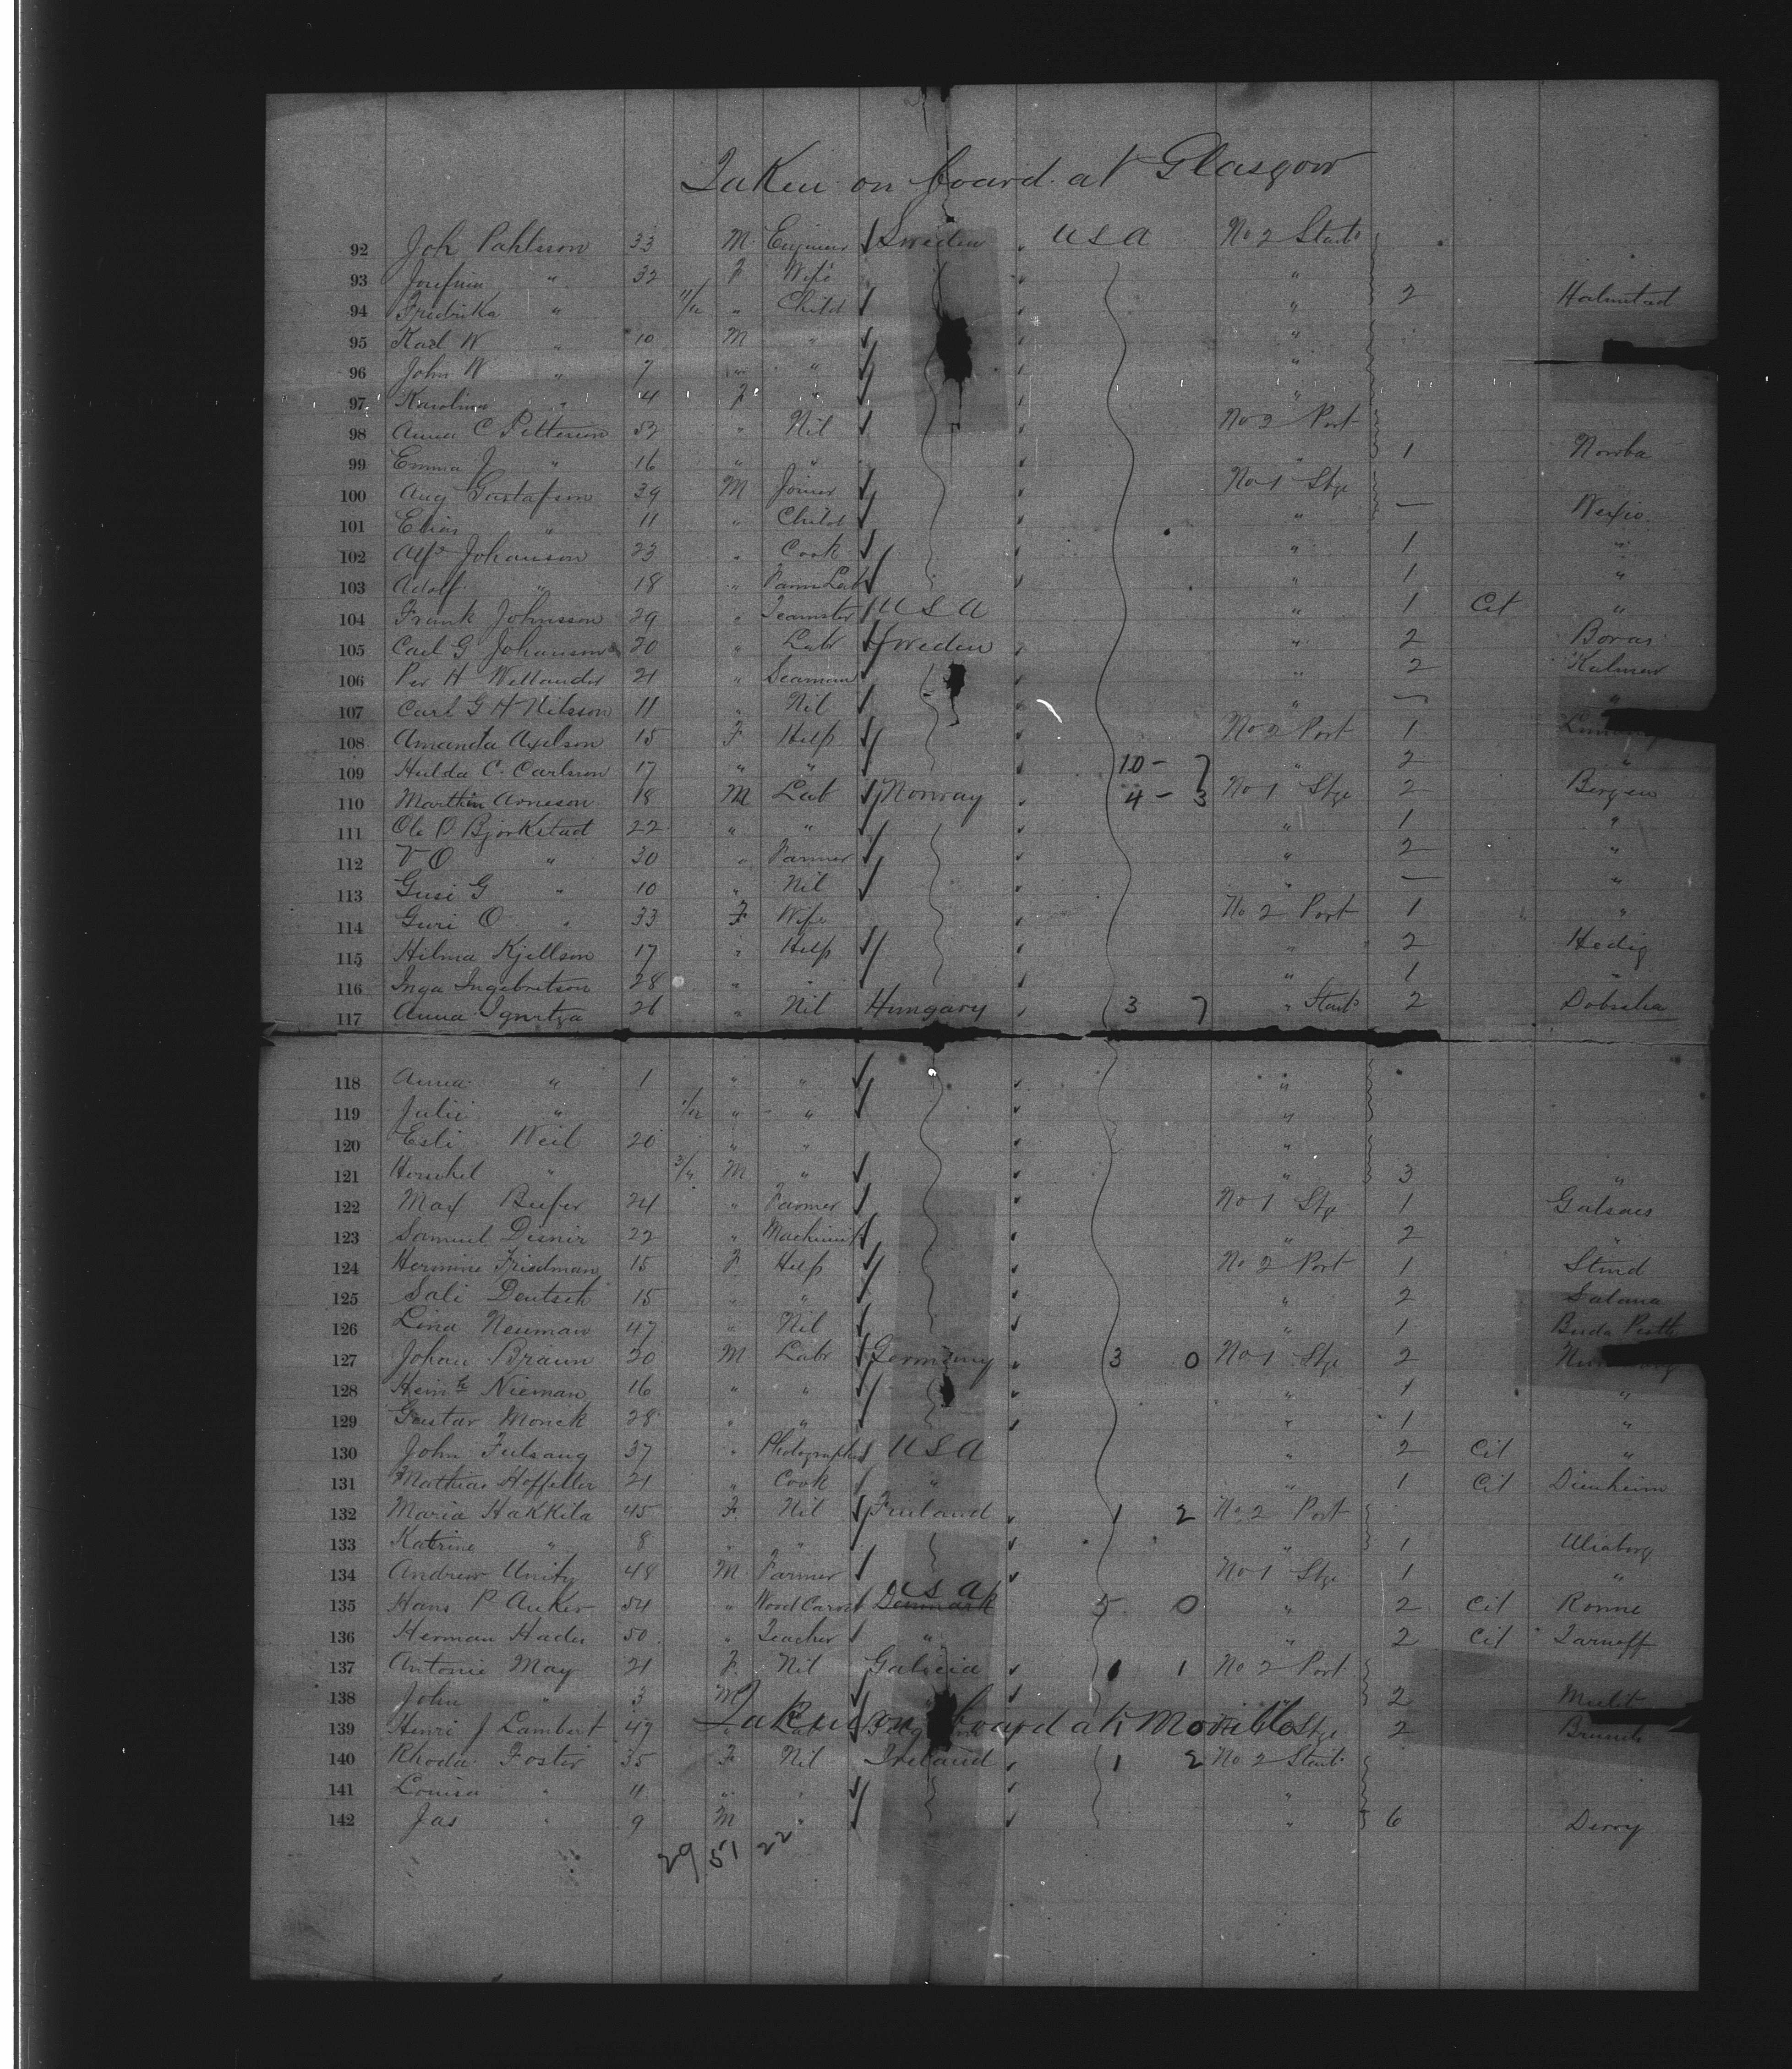 Taken on board at Glasgow
92 Joh Pahlsson 33 M Engineer Sweden USA No 2 Starb
93 Josefina " 32 F Wife "
94 Fredrika " 11/12 " Child " 2 Halmstad
95 Karl W " 10 M " "
96 John W " 7 " " "
97 Karolina " 4 F " "
98 Anna C Petterson 52 " Nil No 2 Port
99 Emma J " 16 " " " 1
100 Aug Gustafson 39 M Joiner No 1 Stge
101 Elias " 11 " Child " — Wexio
102 Alf Johanson 23 " Cook " 1 "
103 Adolf " 18 " Farm Lab " 1 "
104 Frank Johnsson 29 " Teamster USA " 1 Cit "
105 Carl G Johanson 20 " Labr Sweden " 2 Boras
106 Per H Wellander 21 " Seaman " 2 Kalmar
107 Carl G H Nilsson 11 " Nil " — "
108 Amanda Axelson 15 F Help No 2 Port 1
109 Hulda C. Carlsson 17 " " 10 - 7 " 2 "
110 Marthin Arneson 18 M Lab Norway 4 - 3 No 1 Stge 2 Bergen
111 Ole O Bjorkstad 22 " " " 1 "
112 V O " 30 " Farmer " 2 "
113 Gusi G " 10 " Nil " — "
114 Guri O " 33 F Wife No 2 Port 1 "
115 Hilma Kjellson 17 " Help " 2 Hedig
116 Inga Ingebretson 28 " " " 1 "
117 Anna 26 " Nil Hungary 3 7 " Starb 2
118 Anna " 1 " " "
119 Julie " 1/12 " " "
120 Esti Weil 20 " " "
121 Herschel " M " " 3 "
122 Max 24 " Farmer No 1 Stge 1
123 Samuel 22 " Machinist " 2 "
124 Hermine Friedman 15 F Help No 2 Port 1
125 Sali Deutsch 15 " " " 2
126 Lina Neuman 47 " Nil " 1 Buda Pesth
127 Johan Braun 20 M Labr Germany 3 0 No 1 Stge 2
128 Heinh Nieman 16 " " " 1 "
129 Gustav Monck 28 " " " 1 "
130 John 37 " Photographer USA " 2 Cit "
131 Mathias Hoffeller 21 " Cook " " 1 Cit Dienheim
132 Maria Hakkila 45 F Nil Finland 1 2 No 2 Port
133 Katrina " 8 " " " 1 Uliaborg
134 Andrew Unity 48 M Farmer No 1 Stge 1 "
135 Hans P Anker 54 " Wood Carver Denmark USA 5 0 " 2 Cit Ronne
136 Herman Hader 50 " Teacher " " 2 Cit
137 Antonie May 21 F Nil Galicia 1 1 No 2 Port
138 John " 3 M 2
Taken on board at Moville
139 Henri J Lambert 47 " Stge 2
140 Rhoda Foster 35 F Nil Ireland 1 2 No 2 Starb
141 Louisa " 11 " " "
142 Jas " 9 M " " 6 Derry
29 51 22